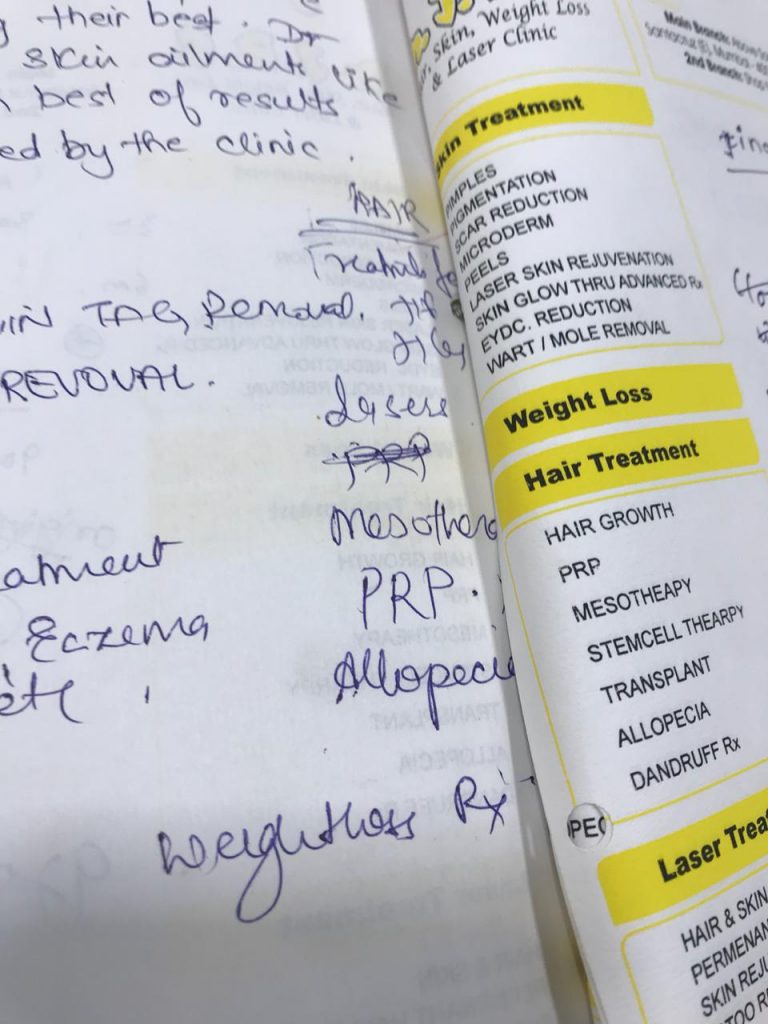 their best. Dr
skin ailments like
best of results
ed by the clinic.
HAIR
TAG Removal.
REVOVAL.
Laser
PRP
Mesothera
atment
PRP.
Eczema
Allopecia
etc
Weightloss Rx
Skin, Weight Loss
& Laser Clinic
Skin Treatment
PIMPLES
PIGMENTATION
SCAR REDUCTION
MICRODERM
PEELS
LASER SKIN REJUVENATION
SKIN GLOW THRU ADVANCED Rx
EYDC. REDUCTION
WART / MOLE REMOVAL
Weight Loss
Hair Treatment
HAIR GROWTH
PRP
MESOTHEAPY
STEMCELL THEARPY
TRANSPLANT
ALLOPECIA
DANDRUFF Rx
OPEC
Laser Trea
HAIR & SKIN
PERMENAN
SKIN REJU
TOO RE
Main Branch: Above
Santacruz (E), Mumbai
2nd Branch: Shop